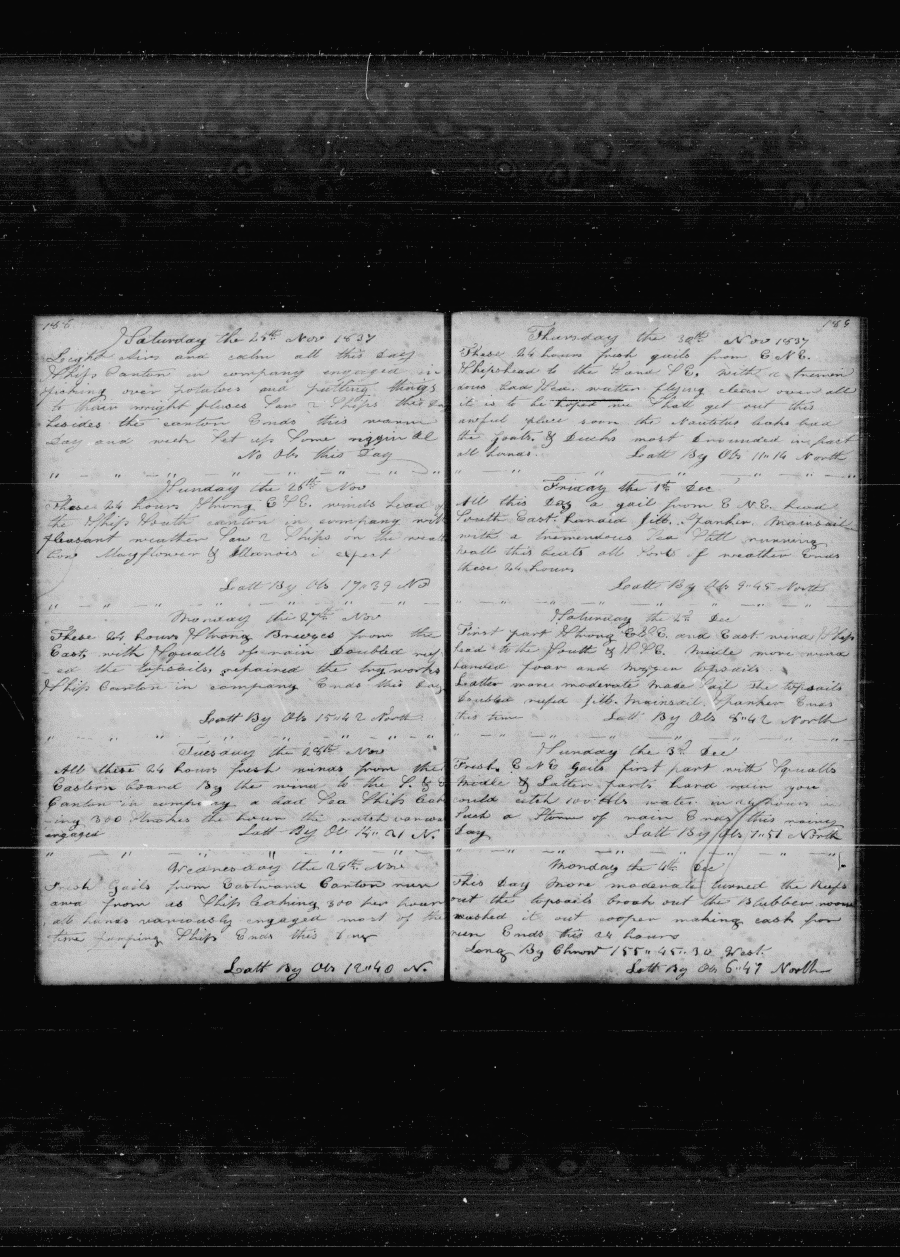 188
Saturday the 25th Nov 1837
Light Airs and calm all this Day
Ship Canton in company engaged in
picking over potatoes and putting things
to thair wright plases Saw 2 Ships this Day
besides the canton Ends this warm
Day and week Set up Some riggin Al
No Obs this Day
Sunday the 26th Nov
These 24 hours Strong E S E. winds head
the Ship South canton in company with
pleasant weather Saw 2 Ships on the weat
Mayflower & Illanois i expect
Latt By Obs 17"39 No
Monday the 27th Nov
These 24 hours Strong Breezes from the
East with Squalls of rain Doubled reef
ed the topsails, repaired the try works
Ship Canton in company Ends this Day
Latt By Obs 15"42 North
Tuesday the 28th Nov
All these 24 hours fresh winds from the
Eastern board By the wind to the S. & E
Canton in company. a bad Sea Ship Leak
ing 300 Strokes the hour the watch varous
engaged Latt By Ob 14"21 N.
Wednesday the 29th Nov
Fresh Gails from Eastward Canton run
awa from us Ship Leaking 300 per hour
all hands variously engaged most of the
time pumping Ship Ends this Day
Latt By Obs 12"40 N.
189
Thursday the 30th Nov 1837
These 24 hours fresh gails from E N E.
Shipshead to the S and S E. with a tremen
dous bad Sea watter flying clean over all
it is to be hoped we Shall get out this
awful place soon the Nautulus leaks bad
the goats & Ducks most Drounded in part
All hands. Latt By Obs 11"14 North
Friday the 1st Dec
All this Day a gail from E N E. head
South East. handed Jibb. Spanker. Mainsail
with a tremendous Sea Still running
wall this beats all Sort of weather Ends
these 24 hours
Latt By Obs 9"45 North
Saturday the 2d Dec
First part Strong E S E. and East wind Ships
head to the South & S S E. Midle more wind
handed foar and Mizzen topsails.
Latter more moderate made Sail the topsails
Doubled reefed Jibb. Mainsail Spanker Ends
this time Latt By Obs 8"42 North
Sunday the 3d Dec
Fresh E N E Gails first part with Squalls
Midle & Latter parts hard rain you
could catch 100 bbls water in 24 hours in
Such a Storm of rain Ends this rainey
Day Latt By Obs 7"51 North
Monday the 4th Dec
This Day More moderate turned the Reefs
out the topsails broak out the Blubber room
washed it out cooper making cask for
rum Ends this 24 hours
Long By Chron 155"45"30 West.
Latt By Obs 6"49 North